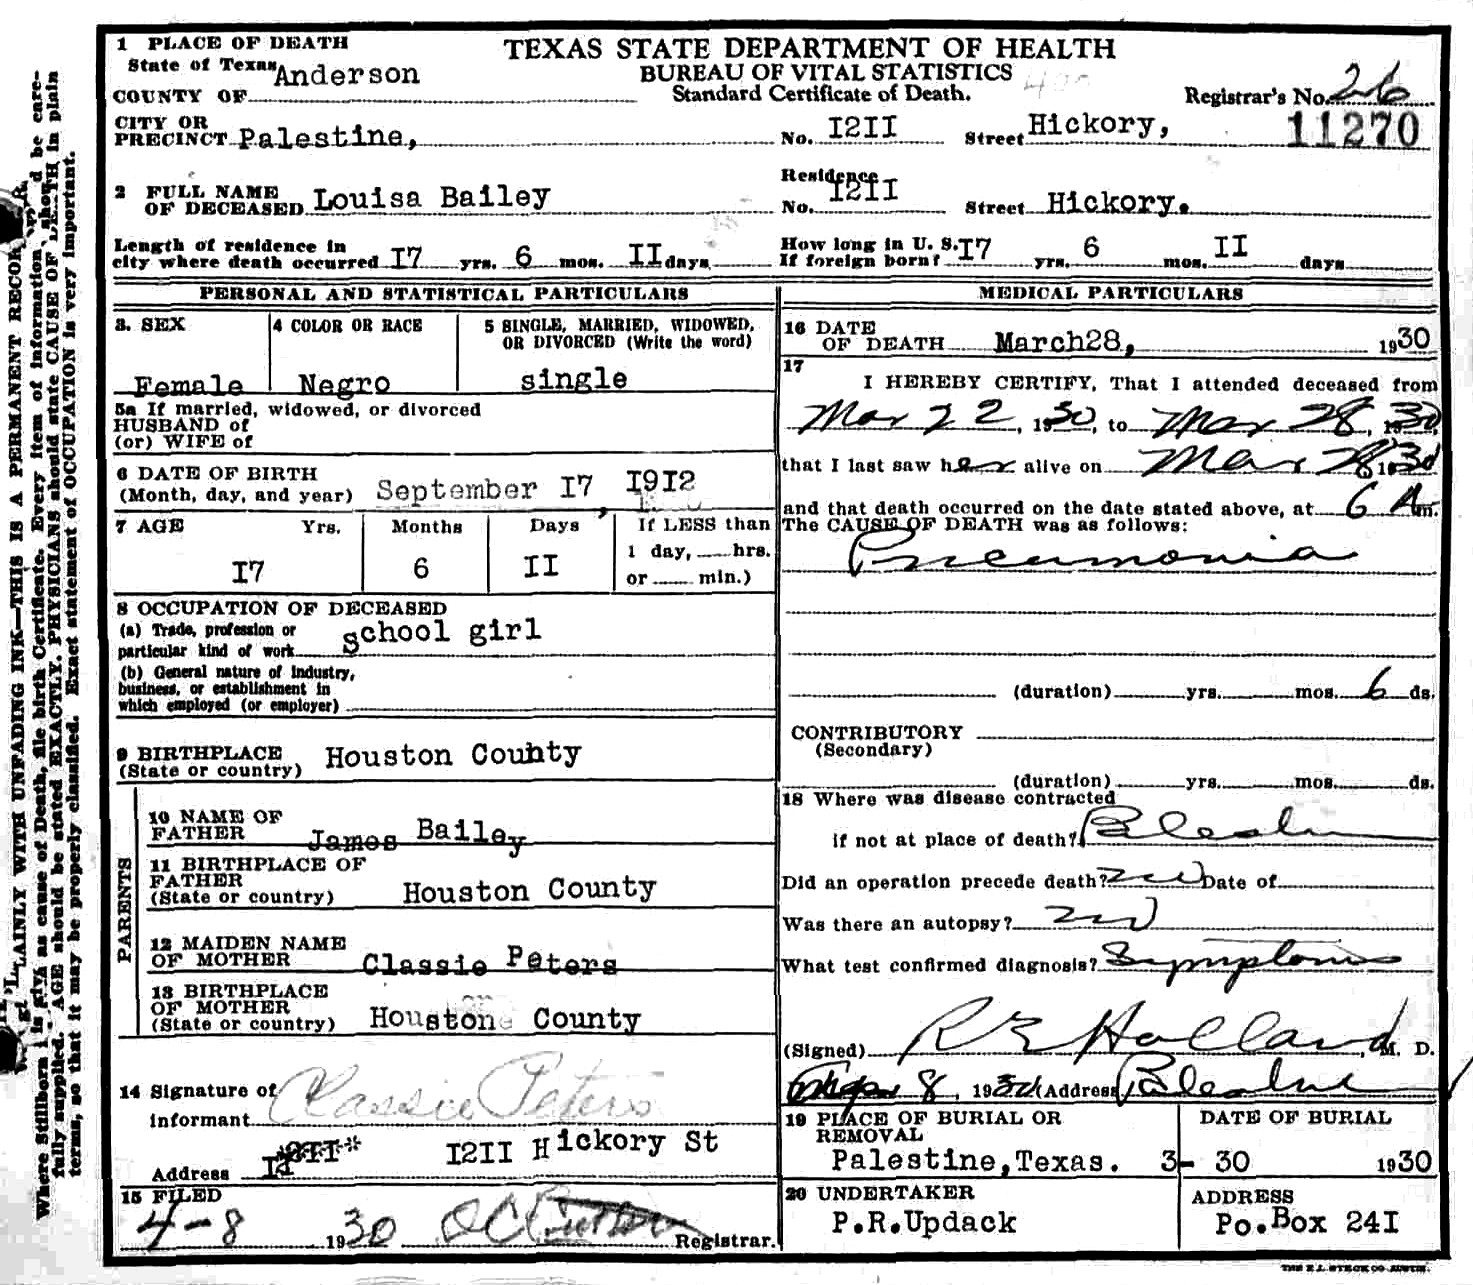 TEXAS STATE DEPARTMENT OF HEALTH
BUREAU OF VITAL STATISTICS
Standard Certificate of Death.
Registrar's No. 26
11270
1 PLACE OF DEATH
State of Texas
COUNTY OF Anderson
CITY OR
PRECINCT Palestine, No. I2II Street Hickory,
2 FULL NAME
OF DECEASED Louisa Bailey
Residence
No. I2II Street Hickory.
Length of residence in
city where death occurred I7 yrs. 6 mos. II days
How long in U. S.
If foreign born? I7 yrs. 6 mos. II days
PERSONAL AND STATISTICAL PARTICULARS
3. SEX
Female
4 COLOR OR RACE
Negro
5 SINGLE, MARRIED, WIDOWED,
OR DIVORCED (Write the word)
single
5a If married, widowed, or divorced
HUSBAND of
(or) WIFE of
6 DATE OF BIRTH
(Month, day, and year) September I7, I9I2
7 AGE Yrs. Months Days If LESS than
1 day, hrs.
or min.)
I7 6 II
8 OCCUPATION OF DECEASED
(a) Trade, profession or
particular kind of work school girl
(b) General nature of industry,
business, or establishment in
which employed (or employer)
9 BIRTHPLACE
(State or country) Houston County
PARENTS
10 NAME OF
FATHER James Bailey
11 BIRTHPLACE OF
FATHER
(State or country) Houston County
12 MAIDEN NAME
OF MOTHER Classie Peters
13 BIRTHPLACE
OF MOTHER
(State or country) Houston County
14 Signature of
informant Classie Peters
Address I2II Hickory St
15 FILED
4-8 1930 Registrar.
MEDICAL PARTICULARS
16 DATE
OF DEATH March28, 1930
17
I HEREBY CERTIFY, That I attended deceased from
Mar 22, 1930, to Mar 28, 1930
that I last saw her alive on Mar 28 1930
and that death occurred on the date stated above, at 6 Am.
The CAUSE OF DEATH was as follows:
Pneumonia
(duration) yrs. mos. 6 ds.
CONTRIBUTORY
(Secondary)
(duration) yrs. mos. ds.
18 Where was disease contracted
if not at place of death? Palestine
Did an operation precede death? no Date of
Was there an autopsy? no
What test confirmed diagnosis? Symptoms
(Signed) R E Holland, M. D.
8, 1930 Address Palestine
19 PLACE OF BURIAL OR
REMOVAL
Palestine,Texas.
DATE OF BURIAL
3- 30 1930
20 UNDERTAKER
P.R.Updack
ADDRESS
Po.Box 24I
THE E.L. STECK CO. AUSTIN.
PLAINLY WITH UNFADING INK—THIS IS A PERMANENT RECORD
Where Stillborn is given as cause of Death, file birth Certificate. Every item of information should be care-
fully supplied. AGE should be stated EXACTLY. PHYSICIANS should state CAUSE OF DEATH in plain
terms, so that it may be properly classified. Exact statement of OCCUPATION is very important.